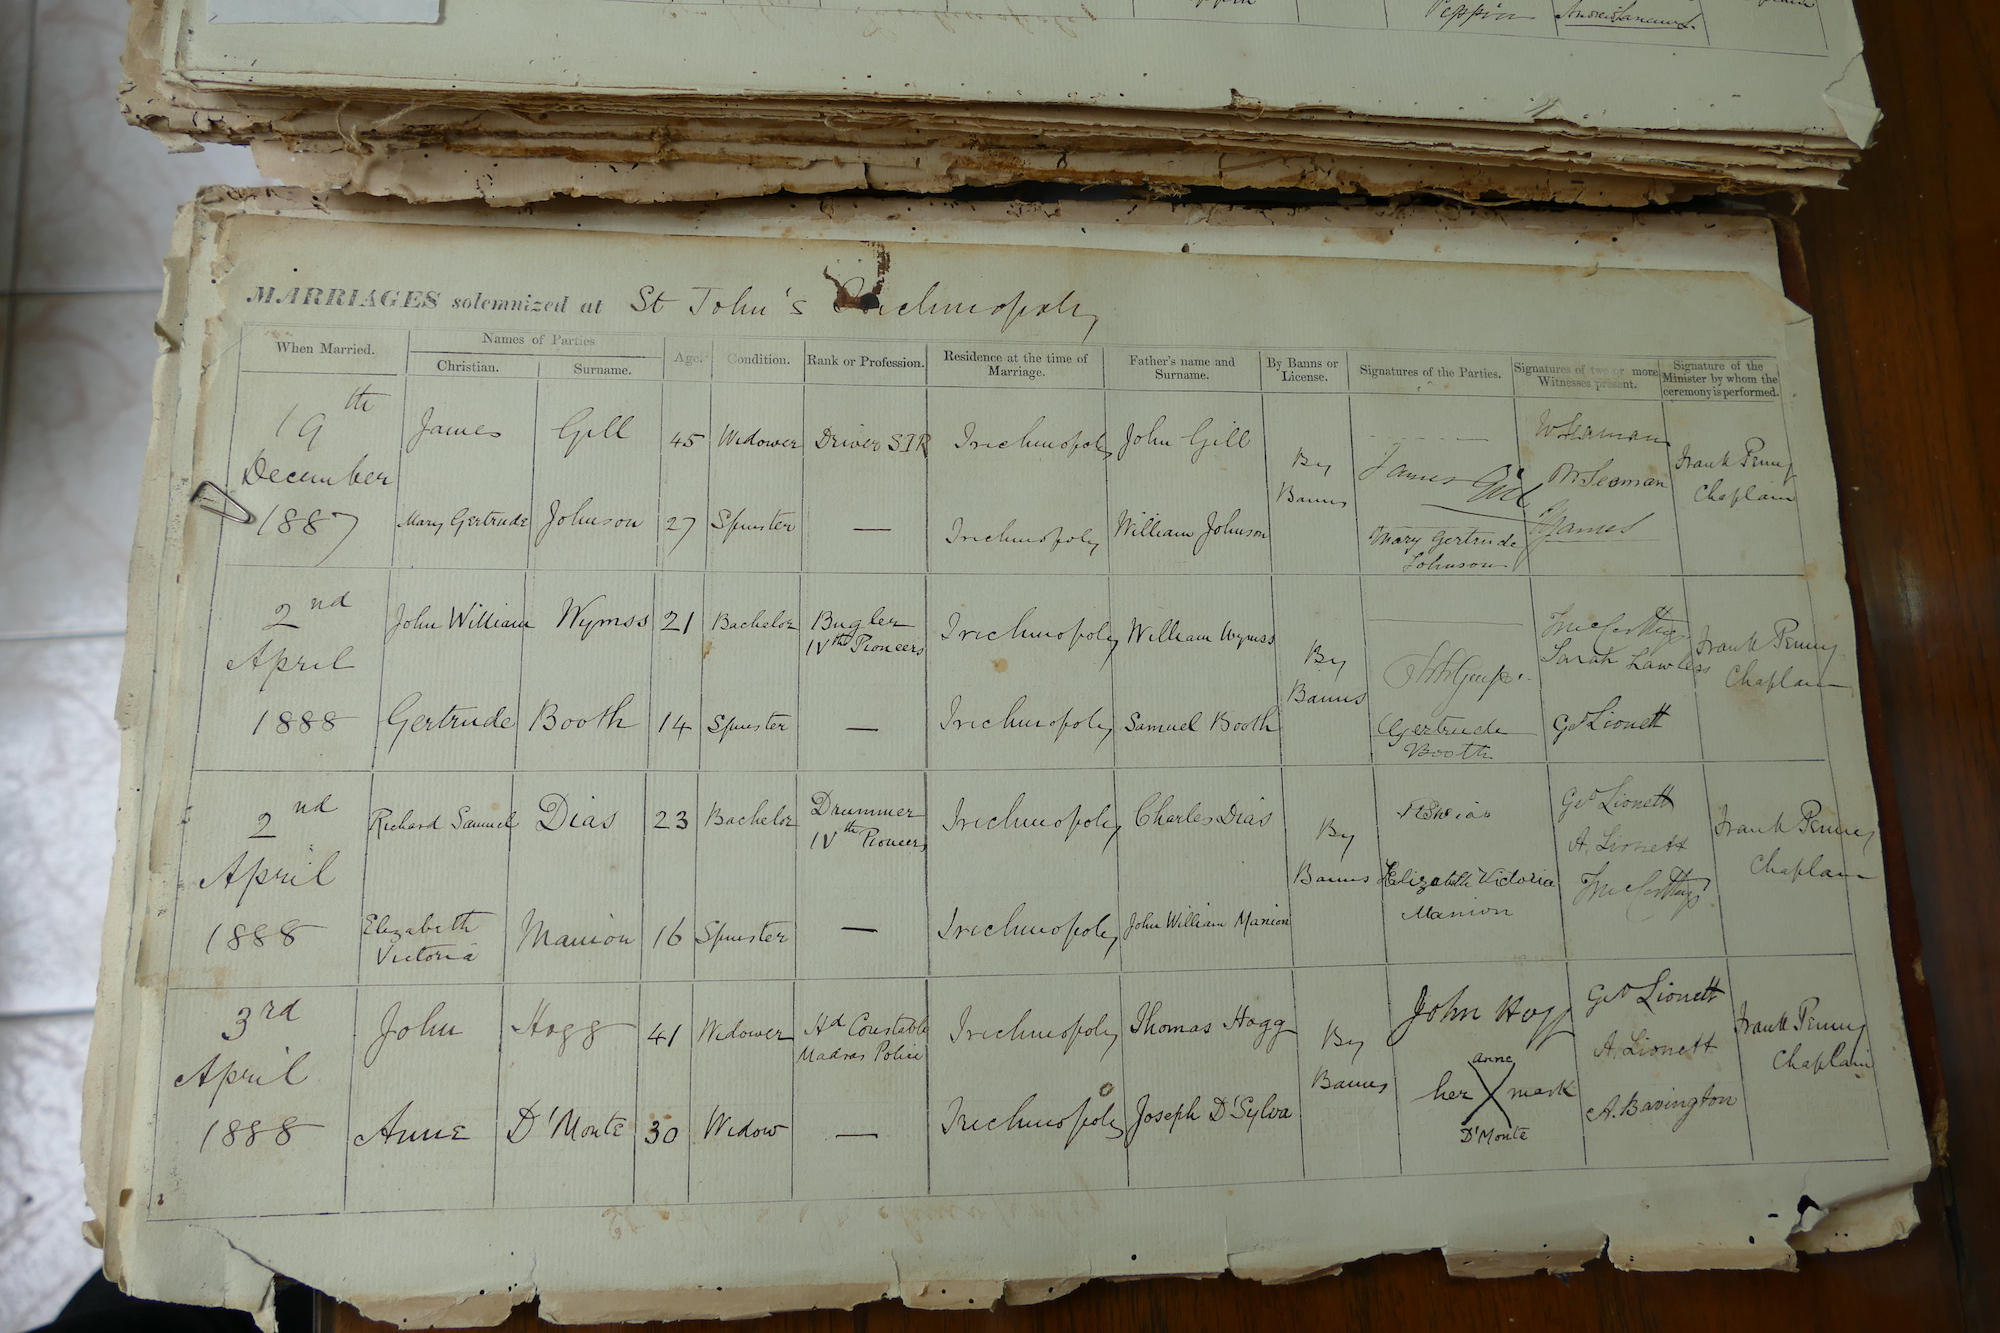 Peppin
MARRIAGES solemnized at St John's Trichinopoly
When Married.
Names of Parties
Christian.
Surname.
Age.
Condition.
Rank or Profession.
Residence at the time of Marriage.
Father's name and Surname.
By Banns or License.
Signatures of the Parties.
Signatures of two or more Witnesses present.
Signature of the Minister by whom the ceremony is performed.
19th December 1887
James Gill 45 Widower Driver SIR Trichinopoly John Gill
Mary Gertrude Johnson 27 Spinster — Trichinopoly William Johnson
By Banns
James Gill
Mary Gertrude Johnson
W Seaman
M Seaman
James
Frank Penny
Chaplain
2nd April 1888
John William Wymss 21 Bachelor Bugler IVth Pioneers Trichinopoly William Wymss
Gertrude Booth 14 Spinster — Trichinopoly Samuel Booth
By Banns
Gertrude Booth
Sarah Lawless
Geo Lionett
Frank Penny
Chaplain
2nd April 1888
Richard Samuel Dias 23 Bachelor Drummer IVth Pioneers Trichinopoly Charles Dias
Elizabeth Victoria Manion 16 Spinster — Trichinopoly John William Manion
By Banns
RSDias
Elizabeth Victoria Manion
Geo Lionett
A. Lionett
Frank Penny
Chaplain
3rd April 1888
John Hogg 41 Widower Hd Constable Madras Police Trichinopoly Thomas Hogg
Anne D'Monte 30 Widow — Trichinopoly Joseph D'Sylva
By Banns
John Hogg
anne
her X mark
D'Monte
Geo Lionett
A. Lionett
A. Bavington
Frank Penny
Chaplain